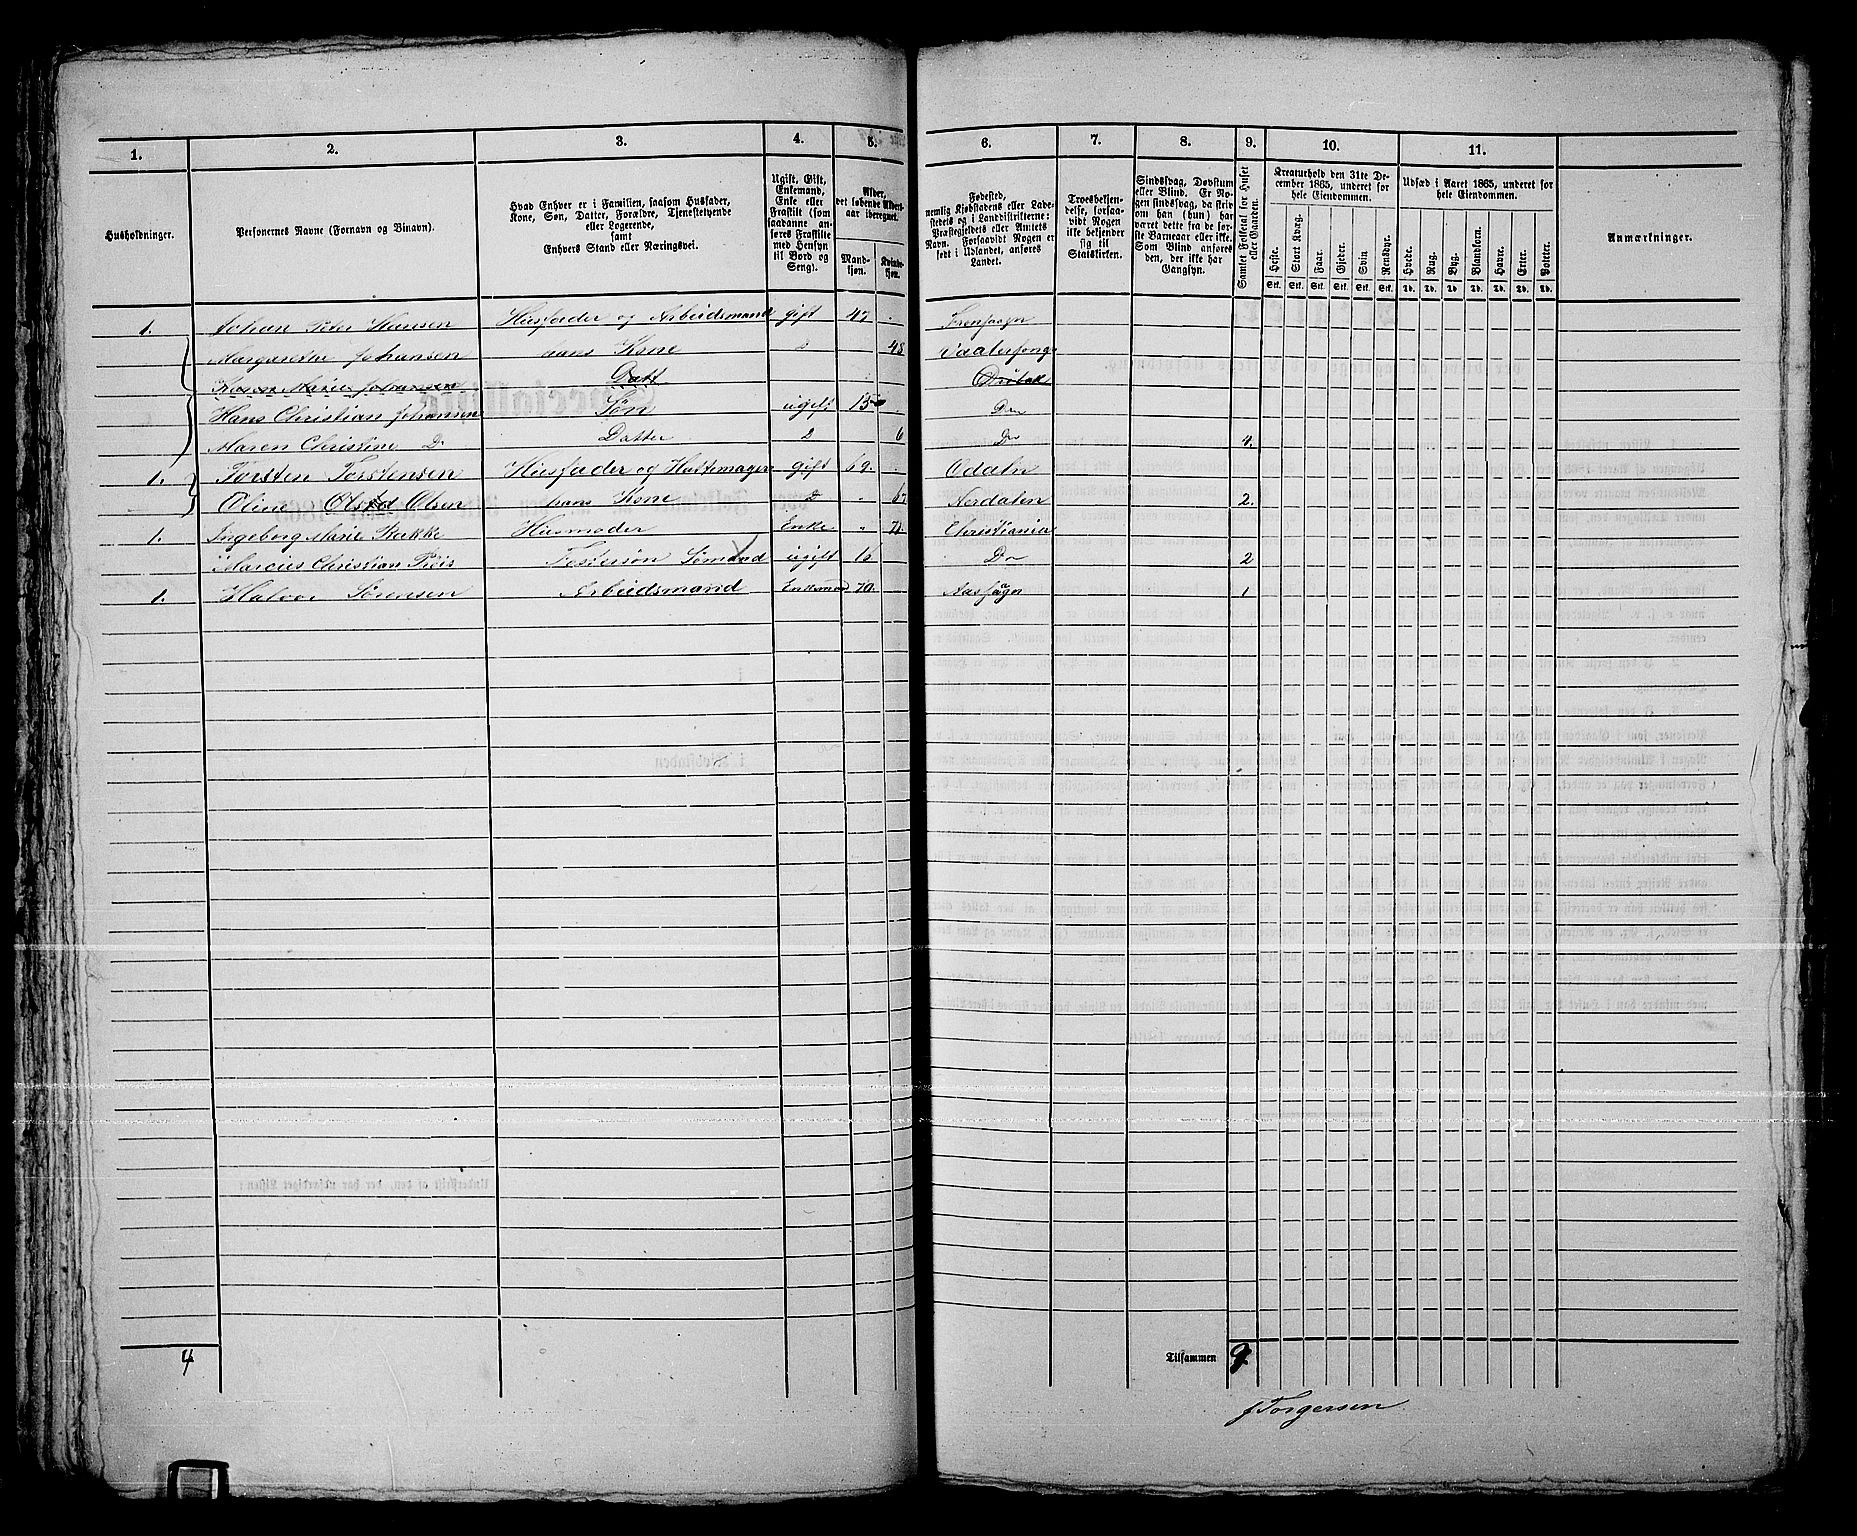 1. 2. 3. 4. 5. 6. 7. 8. 9. 10. 11.
Husholdninger.
Personernes Navne (Fornavn og Binavn).
Hvad Enhver er i Familien, saasom Husfader,
Kone, Søn, Datter, Forældre, Tjenestetyende
eller Logerende,
samt
Enhvers Stand eller Næringsvei.
Ugift, Gift,
Enkemand,
Enke eller
Fraskilt (som
saadanne an-
føres Fraskilte
med Hensyn
til Bord og
Seng).
Alder,
det løbende Alders-
aar iberegnet.
Mand-
kjøn.
Kvinde-
kjøn.
Fødested,
nemlig Kjøbstadens eller Lade-
stedets og i Landdistrikterne:
Præstegjeldets eller Amtets
Navn. Forsaavidt Nogen er
født i Udlandet, anføres
Landet.
Troesbekjen-
delse, forsaa-
vidt Nogen
ikke bekjender
sig til
Statskirken.
Sindssvag, Døvstum
eller Blind. Er No-
gen sindssvag, da skriv
om han (hun) har
været dette fra de før-
ste Barneaar eller ikke.
Som Blind anføres
den, der ikke har
Gangsyn.
Samlet Folketal for Huset
eller Gaarden.
Kreaturhold den 31te De-
cember 1865, underet for
hele Eiendommen.
Heste. Stort Kvæg. Faar. Gjeder. Svin Rensdyr.
Stk. Stk. Stk. Stk. Stk. Stk.
Udsæd i Aaret 1865, underet for
hele Eiendommen.
Hvede. Rug. Byg. Blandkorn. Havre. Erter. Poteter.
Td. Td. Td. Td. Td. Td. Td.
Anmærkninger.
1. Johan Peter Hansen Husfader og Arbeidsmand gift 47 .
Margarethe Johansen hans Kone 48 Vaalerengen
Karen Marie Johansen Datt Drøbak
Hans Christian Johansen Søn ugift 15 . Do
Maren Christine Do Datter 6 Do 4.
1. Torsten Torstensen Husfader og Hattemager gift 69. . Odalen
Oline Olsen hans Kone 67 2.
1. Ingeborg Marie Bakke Husmoder Enke " 71 Christiania
Marcus Christian Fostersøn Sømand ugift 16 Do 2
1. Halvor Sørensen Arbeidsmand Enkemand 70. 1
4
Tilsammen 9
J Torgersen